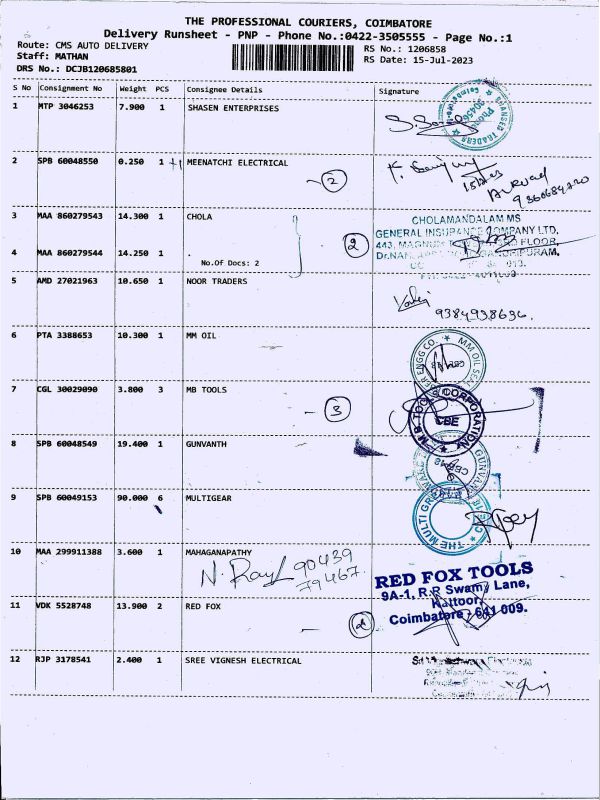 THE PROFESSIONAL COURIERS, COIMBATORE
Delivery Runsheet - PNP - Phone No.:0422-3505555 - Page No.:1
Route: CMS AUTO DELIVERY RS No.: 1206858
Staff: MATHAN RS Date: 15-Jul-2023
DRS No.: DCJB120685801
S No Consignment No Weight PCS Consignee Details Signature
1 MTP 3046253 7.900 1 SHASEN ENTERPRISES
2 SPB 60048550 0.250 1 +1 MEENATCHI ELECTRICAL
2
3 MAA 860279543 14.300 1 CHOLA
CHOLAMANDALAM MS
GENERAL INSURANCE COMPANY LTD,
2
4 MAA 860279544 14.250 1
No.Of Docs: 2
5 AMD 27021963 10.650 1 NOOR TRADERS
9384938636.
6 PTA 3388653 10.300 1 MM OIL
7 CGL 30029090 3.800 3 MB TOOLS
3
CBE
8 SPB 60048549 19.400 1 GUNVANTH
9 SPB 60049153 90.000 6 MULTIGEAR
10 MAA 299911388 3.600 1 MAHAGANAPATHY
90439
79467
RED FOX TOOLS
9A-1, R.R Swamy Lane,
Kattoor,
Coimbatore - 641 009.
11 VDK 5528748 13.900 2 RED FOX
12 RJP 3178541 2.400 1 SREE VIGNESH ELECTRICAL